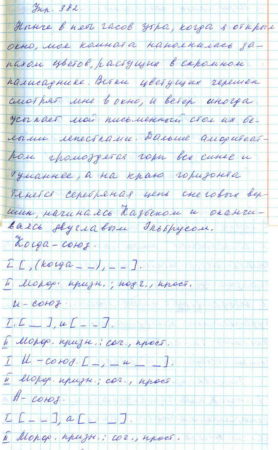 Упр. 382
Нынче в пять часов утра, когда я открыл
окно, моя комната наполнилась за-
пахом цветов, растущих в скромном
палисаднике. Ветки цветущих черешен
смотрят мне в окно, и ветер иногда
усыпает мой письменный стол их бе-
лыми лепестками. Дальше амфитеат-
ром громоздятся горы все синее и
туманнее, а на краю горизонта
тянется серебряная цепь снеговых вер-
шин, начинаясь Казбеком и оканчи-
ваясь двуглавым Эльбрусом.
Когда - союз.
I [ , (когда _ _), _ _ ].
II Морф. призн.: подч., прост.
и - союз.
I [ _ _ ], и [ _ _ ].
II Морф. призн.: соч., прост.
I И - союз [ _, _ и _ _ ]
II Морф. призн.: соч., прост
А - союз.
I [ _ _ ], а [ _ _ ].
II Морф. призн.: соч., прост.